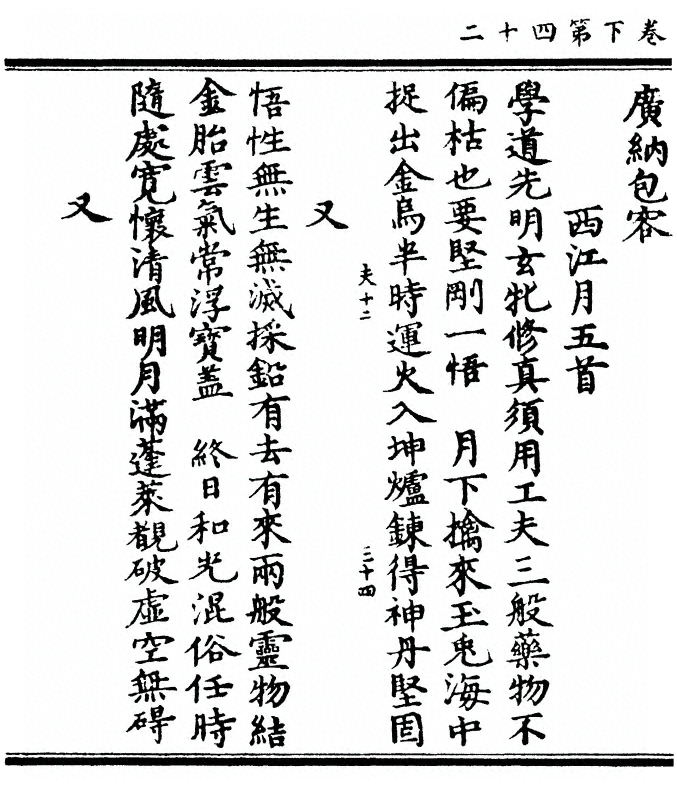 卷下第四十二
廣納包容
西江月五首
學道先明玄牝修真須用工夫三般藥物不
偏枯也要堅剛一悟　月下擒來玉兎海中
捉出金烏半時運火入坤爐鍊得神丹堅固
夫十二
二十四
又
悟性無生無滅採鉛有去有來兩般靈物結
金胎雲氣常浮寶蓋　終日和光混俗任時
隨處寬懷清風明月滿蓬萊覷破虛空無碍
又